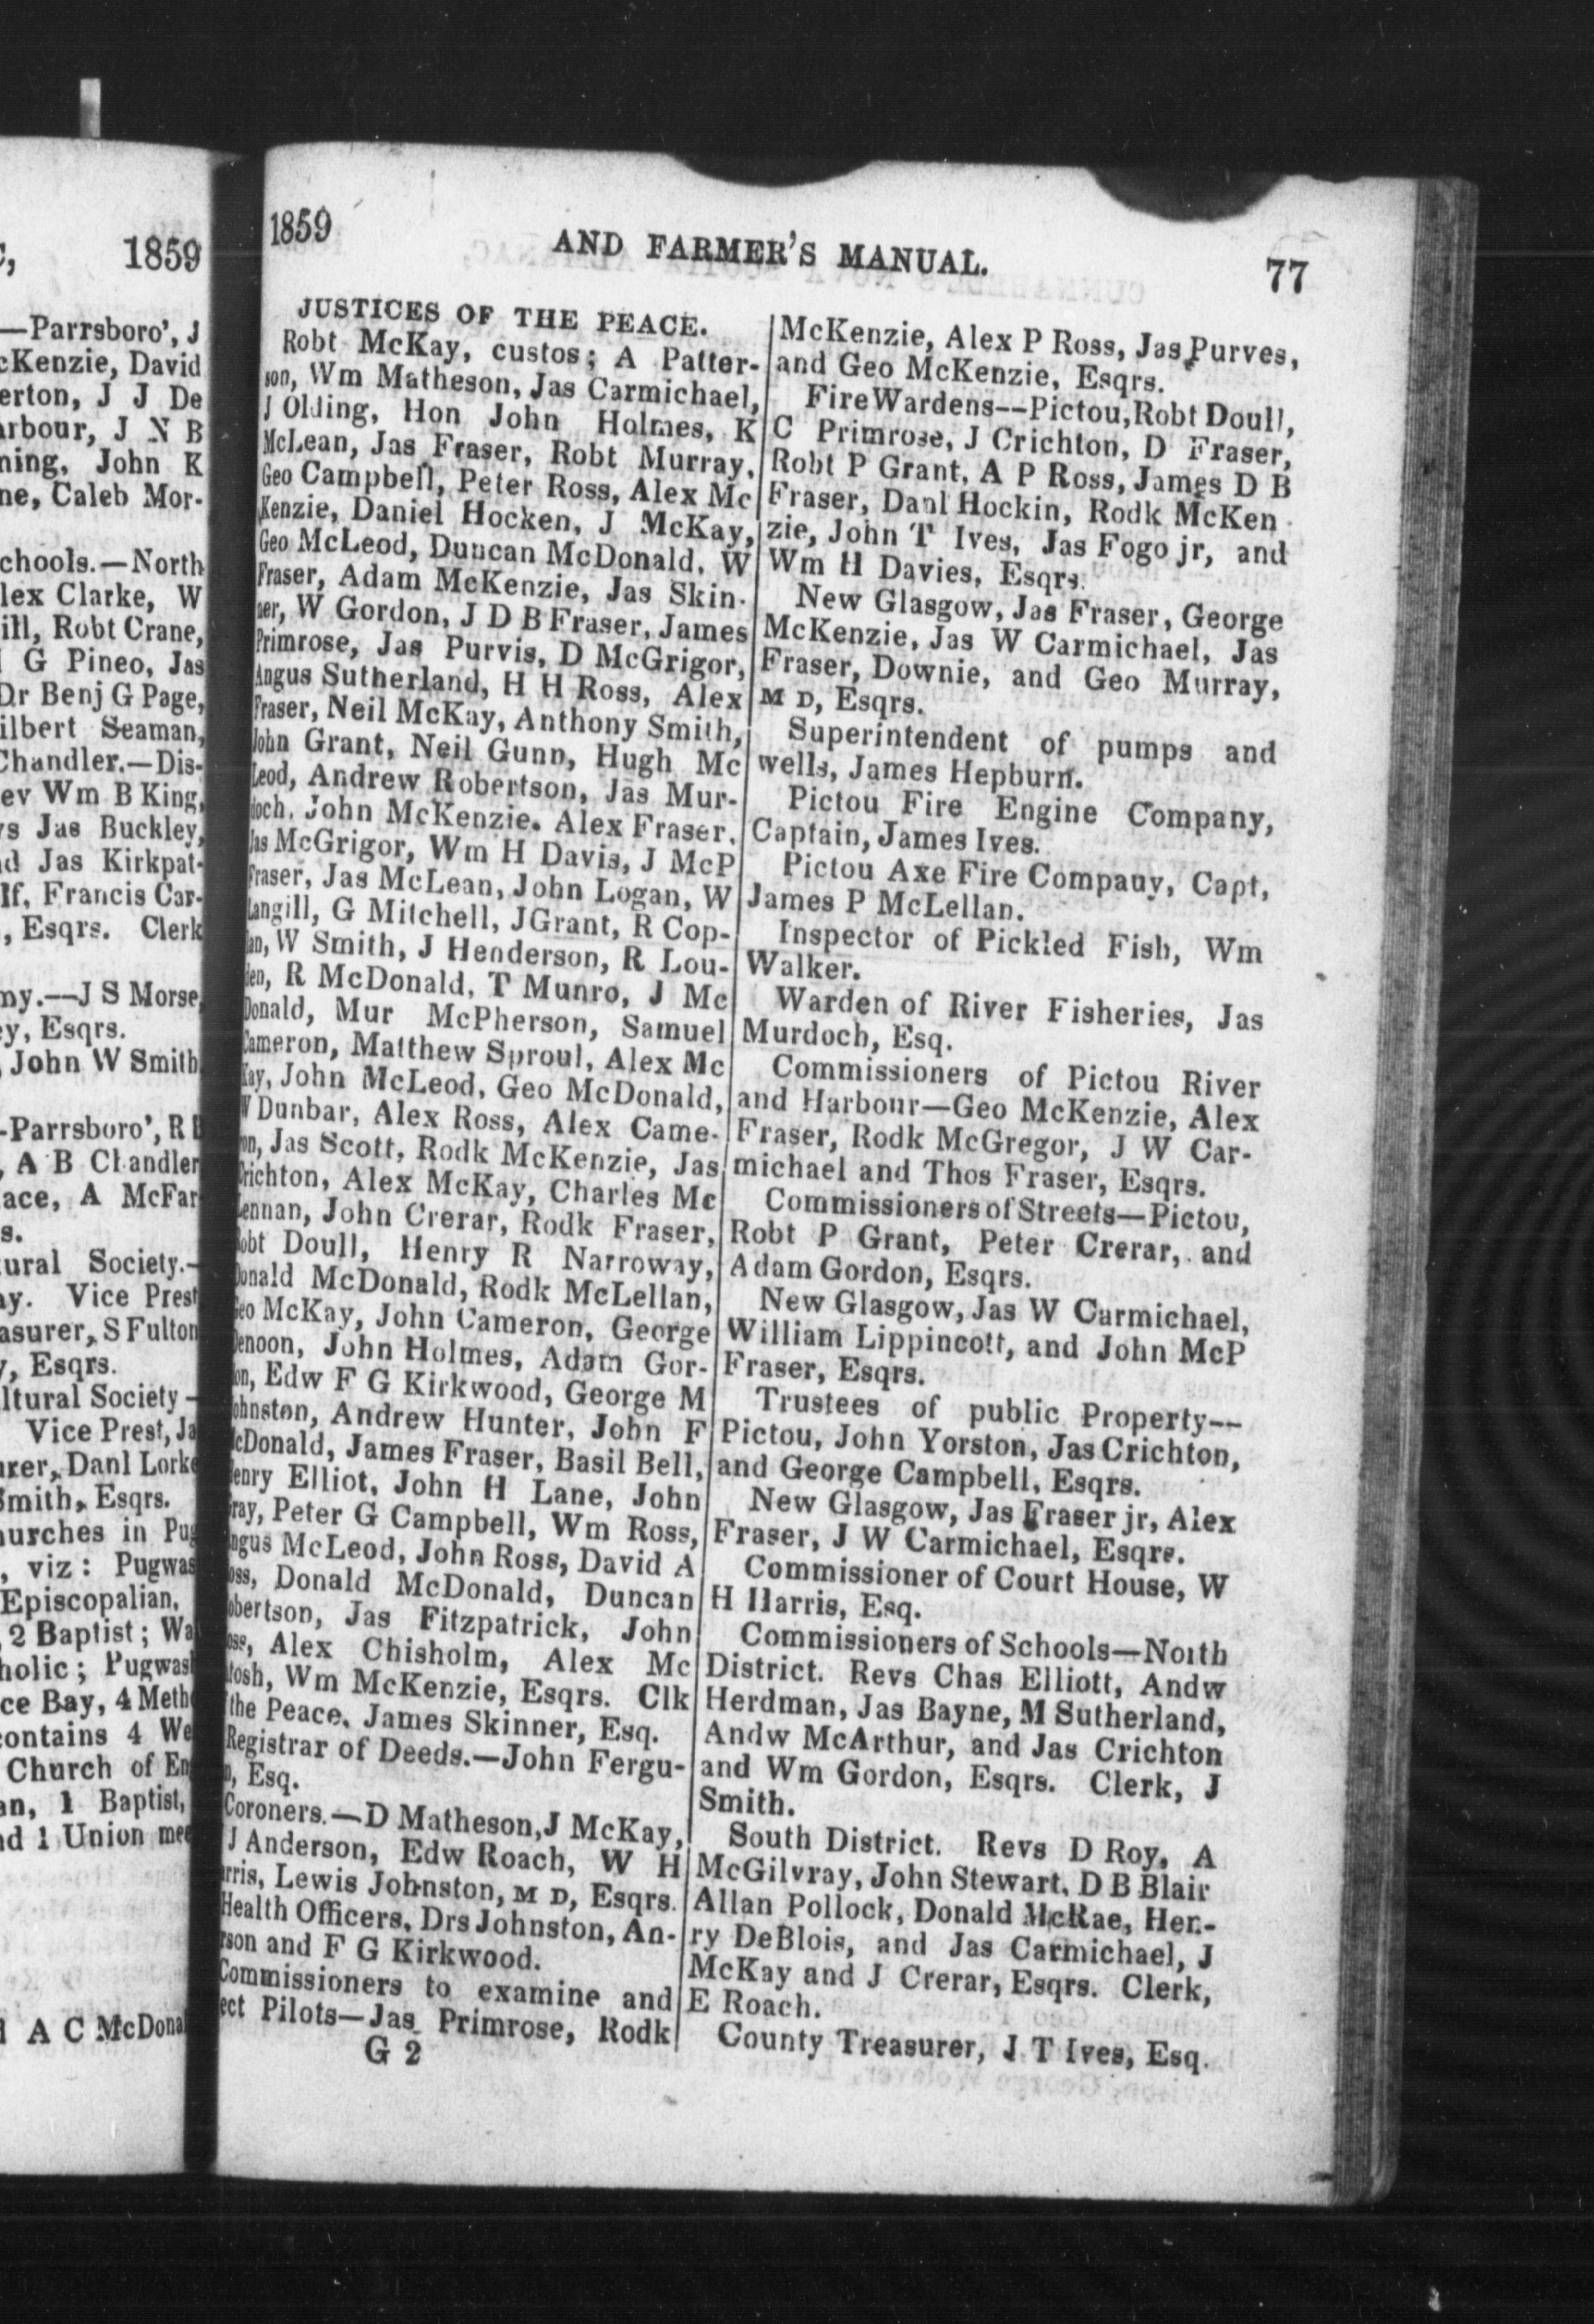 1859
—Parrsboro', J
cKenzie, David
erton, J J De
arbour, J N B
ning, John K
ne, Caleb Mor-
chools.—North
lex Clarke, W
ill, Robt Crane,
G Pineo, Jas
Dr Benj G Page,
ilbert Seaman,
Chandler.—Dis-
ev Wm B King,
s Jas Buckley,
d Jas Kirkpat-
lf, Francis Car-
, Esqrs. Clerk
my.—J S Morse,
ey, Esqrs.
, John W Smith
-Parrsboro', R
, A B Chandler
lace, A McFar
s.
ural Society.-
ay. Vice Prest
asurer, S Fulton
y, Esqrs.
ltural Society -
Vice Prest, Ja
urer, Danl Lorke
Smith, Esqrs.
hurches in Pug
, viz: Pugwas
Episcopalian,
, 2 Baptist; Wa
holic; Pugwas
ce Bay, 4 Meth
contains 4 We
Church of En
an, 1 Baptist,
nd 1 Union mee
A C McDonal
1859
AND FARMER'S MANUAL.
77
JUSTICES OF THE PEACE.
Robt McKay, custos; A Patter-
son, Wm Matheson, Jas Carmichael,
J Olding, Hon John Holmes, K
McLean, Jas Fraser, Robt Murray,
Geo Campbell, Peter Ross, Alex Mc
Kenzie, Daniel Hocken, J McKay,
Geo McLeod, Duncan McDonald, W
Fraser, Adam McKenzie, Jas Skin-
ner, W Gordon, J D B Fraser, James
Primrose, Jas Purvis, D McGrigor,
Angus Sutherland, H H Ross, Alex
Fraser, Neil McKay, Anthony Smith,
John Grant, Neil Gunn, Hugh Mc
Leod, Andrew Robertson, Jas Mur-
doch, John McKenzie. Alex Fraser,
Jas McGrigor, Wm H Davis, J McP
Fraser, Jas McLean, John Logan, W
Langill, G Mitchell, J Grant, R Cop-
lan, W Smith, J Henderson, R Lou-
den, R McDonald, T Munro, J Mc
Donald, Mur McPherson, Samuel
Cameron, Matthew Sproul, Alex Mc
Kay, John McLeod, Geo McDonald,
W Dunbar, Alex Ross, Alex Came-
ron, Jas Scott, Rodk McKenzie, Jas
Crichton, Alex McKay, Charles Mc
Lennan, John Crerar, Rodk Fraser,
Robt Doull, Henry R Narroway,
Donald McDonald, Rodk McLellan,
Geo McKay, John Cameron, George
Denoon, John Holmes, Adam Gor-
don, Edw F G Kirkwood, George M
Johnston, Andrew Hunter, John F
McDonald, James Fraser, Basil Bell,
Henry Elliot, John H Lane, John
Gray, Peter G Campbell, Wm Ross,
Angus McLeod, John Ross, David A
Ross, Donald McDonald, Duncan
Robertson, Jas Fitzpatrick, John
Ross, Alex Chisholm, Alex Mc
Intosh, Wm McKenzie, Esqrs. Clk
the Peace, James Skinner, Esq.
Registrar of Deeds.—John Fergu-
n, Esq.
Coroners.—D Matheson, J McKay,
J Anderson, Edw Roach, W H
rris, Lewis Johnston, M D, Esqrs.
Health Officers, Drs Johnston, An-
rson and F G Kirkwood.
Commissioners to examine and
ect Pilots—Jas Primrose, Rodk
G 2
McKenzie, Alex P Ross, Jas Purves,
and Geo McKenzie, Esqrs.
Fire Wardens--Pictou, Robt Doull,
C Primrose, J Crichton, D Fraser,
Robt P Grant, A P Ross, James D B
Fraser, Danl Hockin, Rodk McKen-
zie, John T Ives, Jas Fogo jr, and
Wm H Davies, Esqrs.
New Glasgow, Jas Fraser, George
McKenzie, Jas W Carmichael, Jas
Fraser, Downie, and Geo Murray,
M D, Esqrs.
Superintendent of pumps and
wells, James Hepburn.
Pictou Fire Engine Company,
Captain, James Ives.
Pictou Axe Fire Company, Capt,
James P McLellan.
Inspector of Pickled Fish, Wm
Walker.
Warden of River Fisheries, Jas
Murdoch, Esq.
Commissioners of Pictou River
and Harbour—Geo McKenzie, Alex
Fraser, Rodk McGregor, J W Car-
michael and Thos Fraser, Esqrs.
Commissioners of Streets—Pictou,
Robt P Grant, Peter Crerar, and
Adam Gordon, Esqrs.
New Glasgow, Jas W Carmichael,
William Lippincott, and John McP
Fraser, Esqrs.
Trustees of public Property--
Pictou, John Yorston, Jas Crichton,
and George Campbell, Esqrs.
New Glasgow, Jas Fraser jr, Alex
Fraser, J W Carmichael, Esqrs.
Commissioner of Court House, W
H Harris, Esq.
Commissioners of Schools—North
District. Revs Chas Elliott, Andw
Herdman, Jas Bayne, M Sutherland,
Andw McArthur, and Jas Crichton
and Wm Gordon, Esqrs. Clerk, J
Smith.
South District. Revs D Roy, A
McGilvray, John Stewart, D B Blair
Allan Pollock, Donald McRae, Hen-
ry DeBlois, and Jas Carmichael, J
McKay and J Crerar, Esqrs. Clerk,
E Roach.
County Treasurer, J T Ives, Esq.